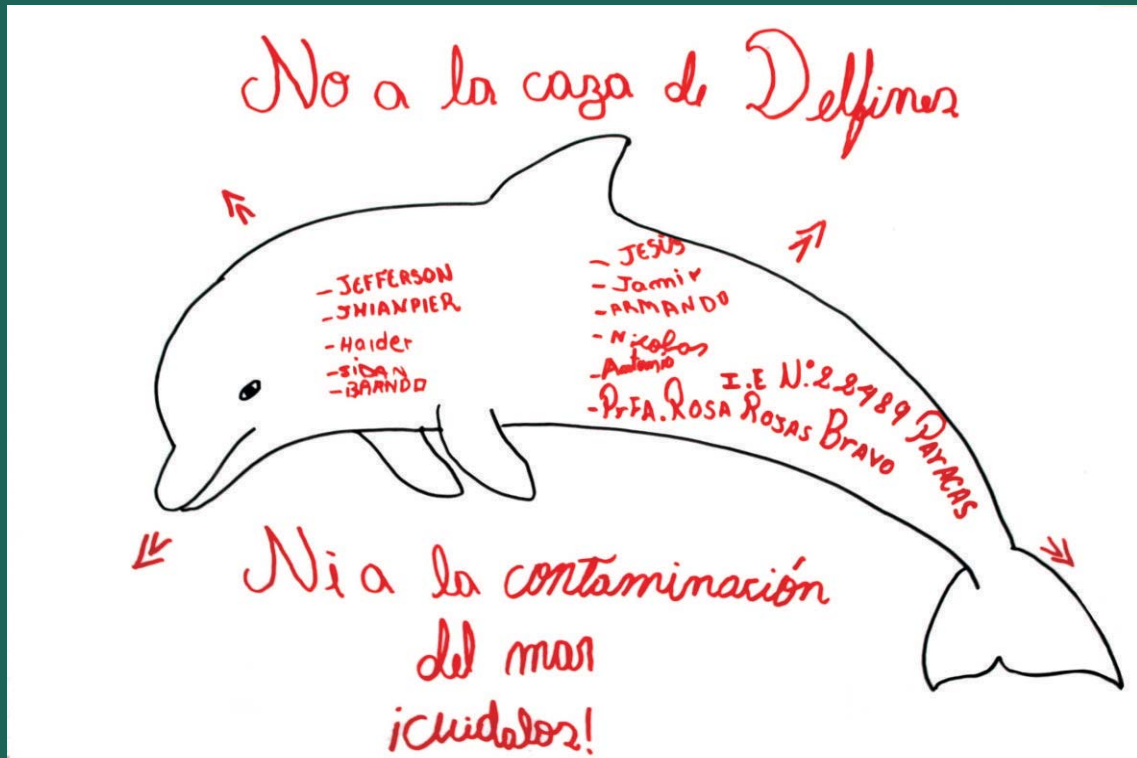 No a la caza de Delfines
- JEFFERSON
- JHIANPIER
- Haider
- JIDAN
- BRANDO
- JESÚS
- Jamir
- ARMANDO
- Nicolas
- Antonio
- PrFA. ROSA ROJAS BRAVO
I.E N° 22489 PARACAS
Ni a la contaminación
del mar
¡Cuidalos!